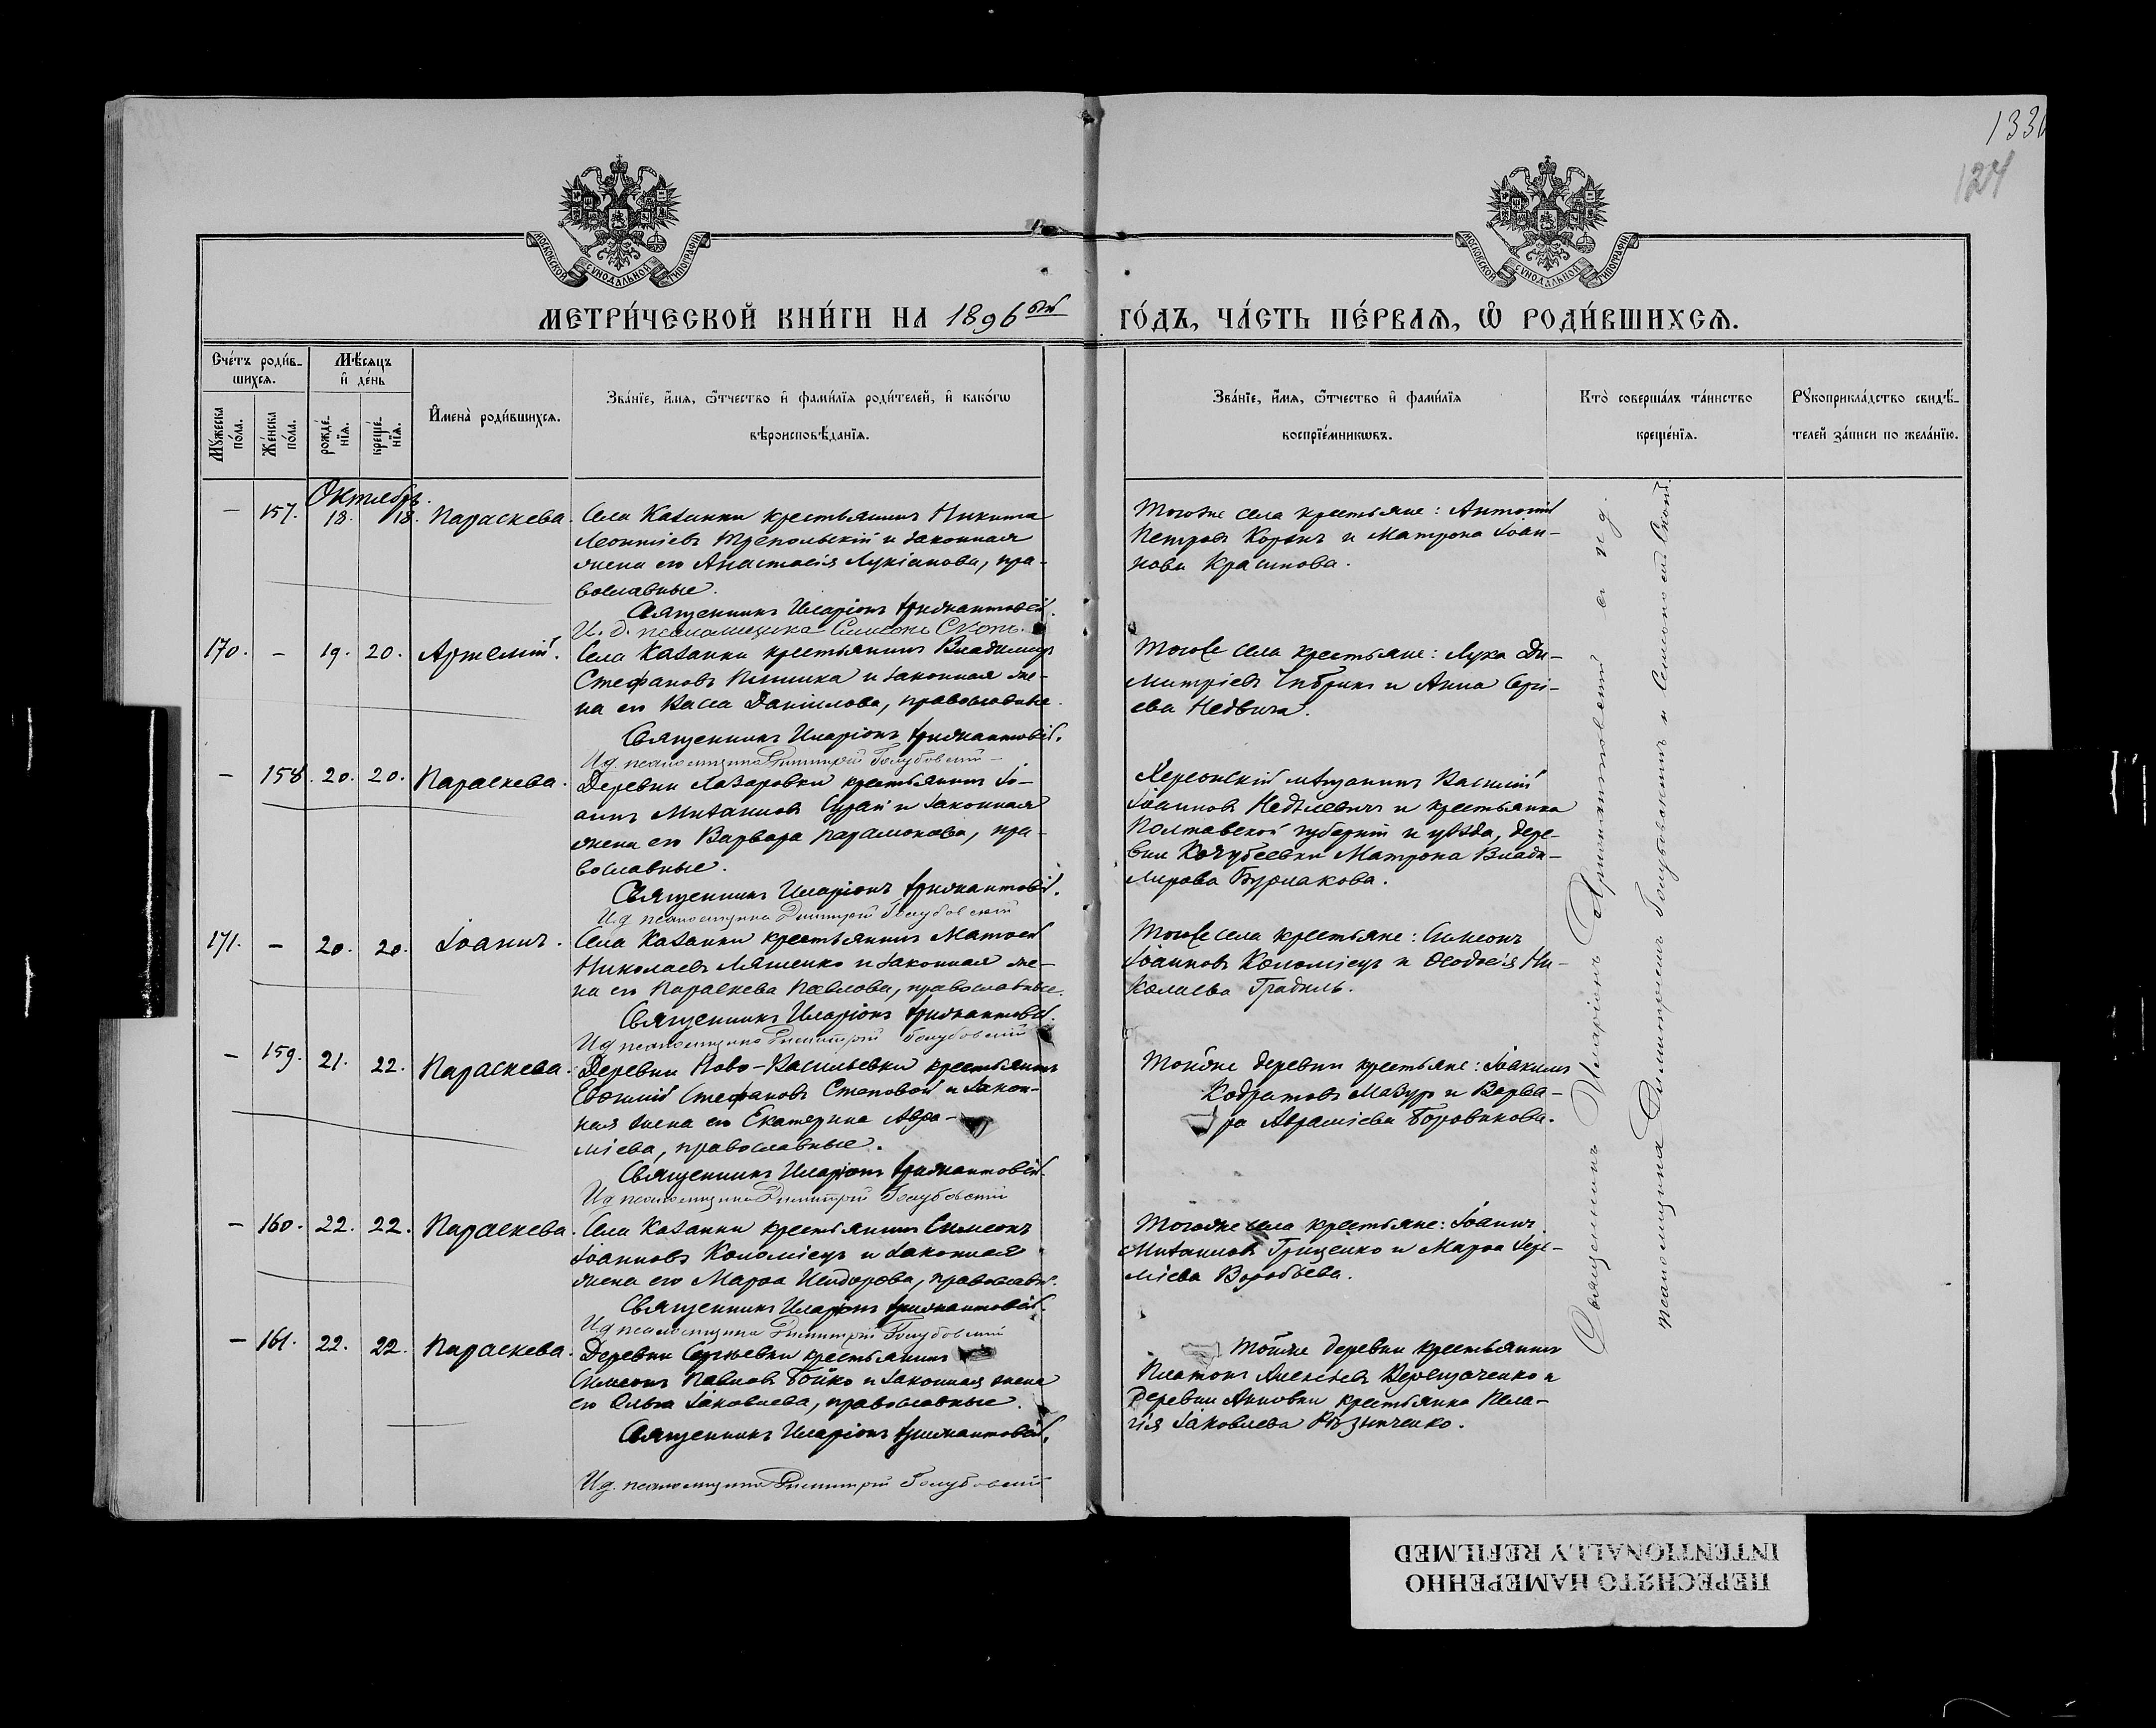 1330
124
МОСКОВСКОЙ СУНОДАЛЬНОЙ ТИПОГРАФІИ
МОСКОВСКОЙ СУНОДАЛЬНОЙ ТИПОГРАФІИ
МЕТРИ́ЧЕСКОЙ КНИ́ГИ НА 1896 ой ГО́ДЪ, ЧА́СТЬ ПЕ́РВАѦ, Ѽ РОДИ́ВШИХСѦ.
Сче́тъ роди́в-
шихсѧ.
Мѣ́сѧцъ
и҆ де́нь
Мꙋ́жеска
по́ла.
Же́нска
по́ла.
рожде́-
нїѧ.
креще́-
нїѧ.
И҆мена̀ роди́вшихсѧ.
Зва́нїе, и҆́мѧ, ѻ҆́тчество и҆ фами́лїѧ роди́телей, и҆ како́гѡ
вѣроисповѣ́данїѧ.
Зва́нїе, и҆́мѧ, ѻ҆́тчество и҆ фами́лїѧ
воспрїе́мникѡвъ.
Кто̀ соверша́лъ та́инство
креще́нїѧ.
Рꙋкоприкла́дство свидѣ́-
телей за́писи по жела́нїю.
Октябрь.
— 157. 18. 18. Параскева.
Села Казанки крестьянинъ Никита
Леонтіевъ Трепольскій и законная
жена его Анастасія Лукіанова, пра-
вославные.
Священникъ Иларіонъ
И. д. псаломщика Симеонъ Скопъ.
Тогоже села крестьяне: Антоній
Петровъ Коранъ и Матрона Іоан-
нова Красикова.
170. — 19. 20. Артемій.
Села Казанки крестьянинъ Владимиръ
Стефановъ и законная же-
на его Васса Даніилова, православные.
Священникъ Иларіонъ
И д. псаломщика Димитрій Голубовскій
Тогоже села крестьяне: Лука Ди-
митріевъ и Анна Сергі-
ева
— 158. 20. 20. Параскева.
Деревни Лазаровки крестьянинъ Іо-
аннъ Михаиловъ и законная
жена его Варвара Парамонова, пра-
вославные.
Священникъ Иларіонъ
И д псаломщика Димитрій Голубовскій
Херсонскій мѣщанинъ Василій
Іоанновъ Недѣлевичъ и крестьянка
Полтавской губерніи и уѣзда, дере-
вни Кочубеевки Матрона Влади-
мирова Бурлакова.
171. — 20. 20. Іоаннъ.
Села Казанки крестьянинъ Матѳей
Николаевъ Ляшенко и законная же-
на его Параскева Павлова, православные.
Священникъ Иларіонъ
И д псаломщика Димитрій Голубовскій
Тогоже села крестьяне: Симеонъ
Іоанновъ Коломіецъ и Ѳеодосія Ни-
колаева Градиль.
— 159. 21. 22. Параскева.
Деревни Ново-Васильевки крестьянинъ
Евѳимій Стефановъ Степовой и закон-
ная жена его Екатерина Авра-
міева, православные.
Священникъ Иларіонъ
И д псаломщика Димитрій Голубовскій
Тойже деревни крестьяне: Іоакимъ
Кодратовъ Мазуръ и Варва-
ра Авраміева Боровикова.
— 160. 22. 22. Параскева.
Села Казанки крестьянинъ Симеонъ
Іоанновъ Коломіецъ и законная
жена его Марѳа Исидорова, православн.
Священникъ Иларіонъ
И д псаломщика Димитрій Голубовскій
Тогоже села крестьяне: Іоаннъ
Михаиловъ Гриценко и Марѳа Іере-
міева Воробьева.
— 161. 22. 22. Параскева.
Деревни Сергѣевки крестьянинъ
Симеонъ Павловъ Бойко и законная жена
его Ольга Іаковлева, православные.
Священникъ Иларіонъ
И д. псаломщика Димитрій Голубовскій
Тойже деревни крестьянинъ
Платонъ Алексѣевъ и
Деревни Анновки крестьянка Пела-
гія Іаковлева
Священникъ Иларіонъ съ и д.
псаломщика Димитріемъ Голубовскимъ и Симеономъ Скопъ.
ПЕРЕСНЯТО НАМЕРЕННО
INTENTIONALLY REFILMED